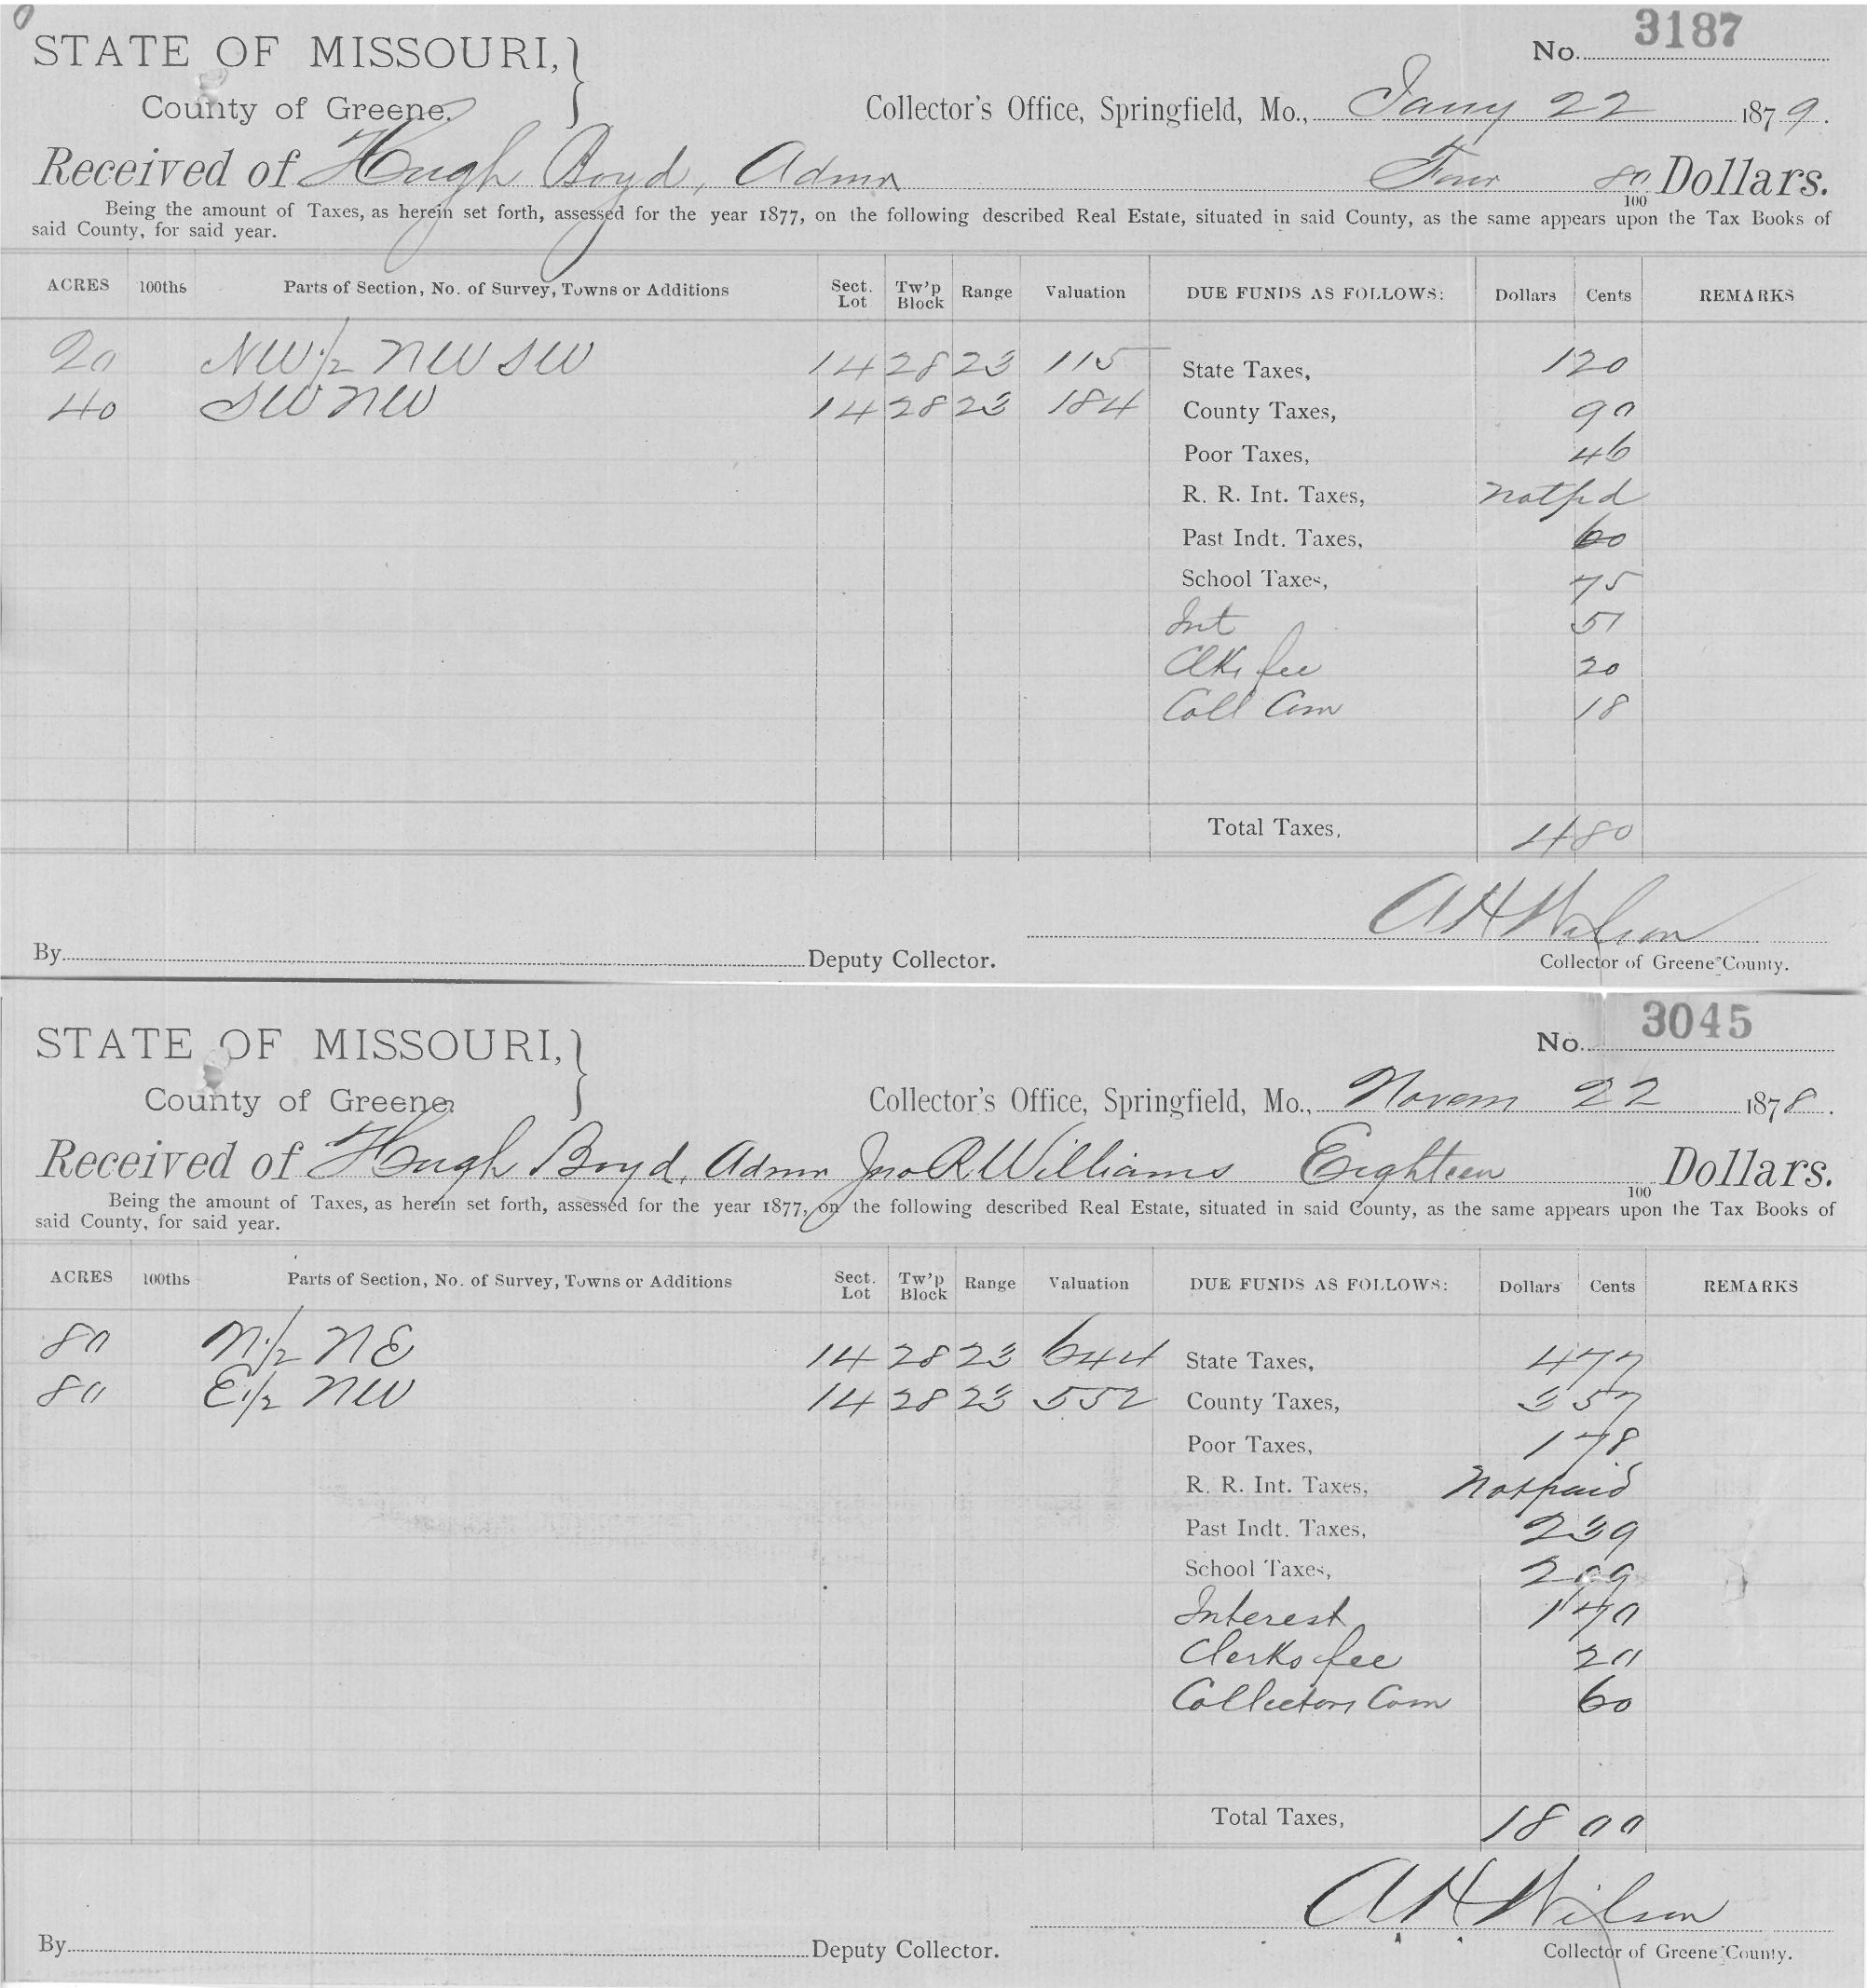 No. 3187
STATE OF MISSOURI,
County of Greene.
Collector's Office, Springfield, Mo., Jany 22 1879.
Received of Hugh Boyd, Admr Four 80/100 Dollars.
Being the amount of Taxes, as herein set forth, assessed for the year 1877, on the following described Real Estate, situated in said County, as the same appears upon the Tax Books of
said County, for said year.
ACRES 100ths Parts of Section, No. of Survey, Towns or Additions Sect. Lot Tw'p Block Range Valuation DUE FUNDS AS FOLLOWS: Dollars Cents REMARKS
20 NW 1/2 NW SW 14 28 23 115 State Taxes, 1 20
40 SW NW 14 28 23 184 County Taxes, 90
Poor Taxes, 46
R. R. Int. Taxes, not pd
Past Indt. Taxes, 60
School Taxes, 75
Int 51
Clks fee 20
Coll Com 18
Total Taxes, 4 80
A H Wilson
By Deputy Collector. Collector of Greene County.
No. 3045
STATE OF MISSOURI,
County of Greene.
Collector's Office, Springfield, Mo., Novem 22 1878.
Received of Hugh Boyd, Admr Jno R Williams Eighteen 100 Dollars.
Being the amount of Taxes, as herein set forth, assessed for the year 1877, on the following described Real Estate, situated in said County, as the same appears upon the Tax Books of
said County, for said year.
ACRES 100ths Parts of Section, No. of Survey, Towns or Additions Sect. Lot Tw'p Block Range Valuation DUE FUNDS AS FOLLOWS: Dollars Cents REMARKS
80 N 1/2 NE 14 28 23 644 State Taxes, 4 77
80 E 1/2 NW 14 28 23 552 County Taxes, 3 57
Poor Taxes, 1 78
R. R. Int. Taxes, Not paid
Past Indt. Taxes, 2 39
School Taxes, 2 99
Interest 1 70
Clerks fee 20
Collectors Com 60
Total Taxes, 18 00
A H Wilson
By Deputy Collector. Collector of Greene County.